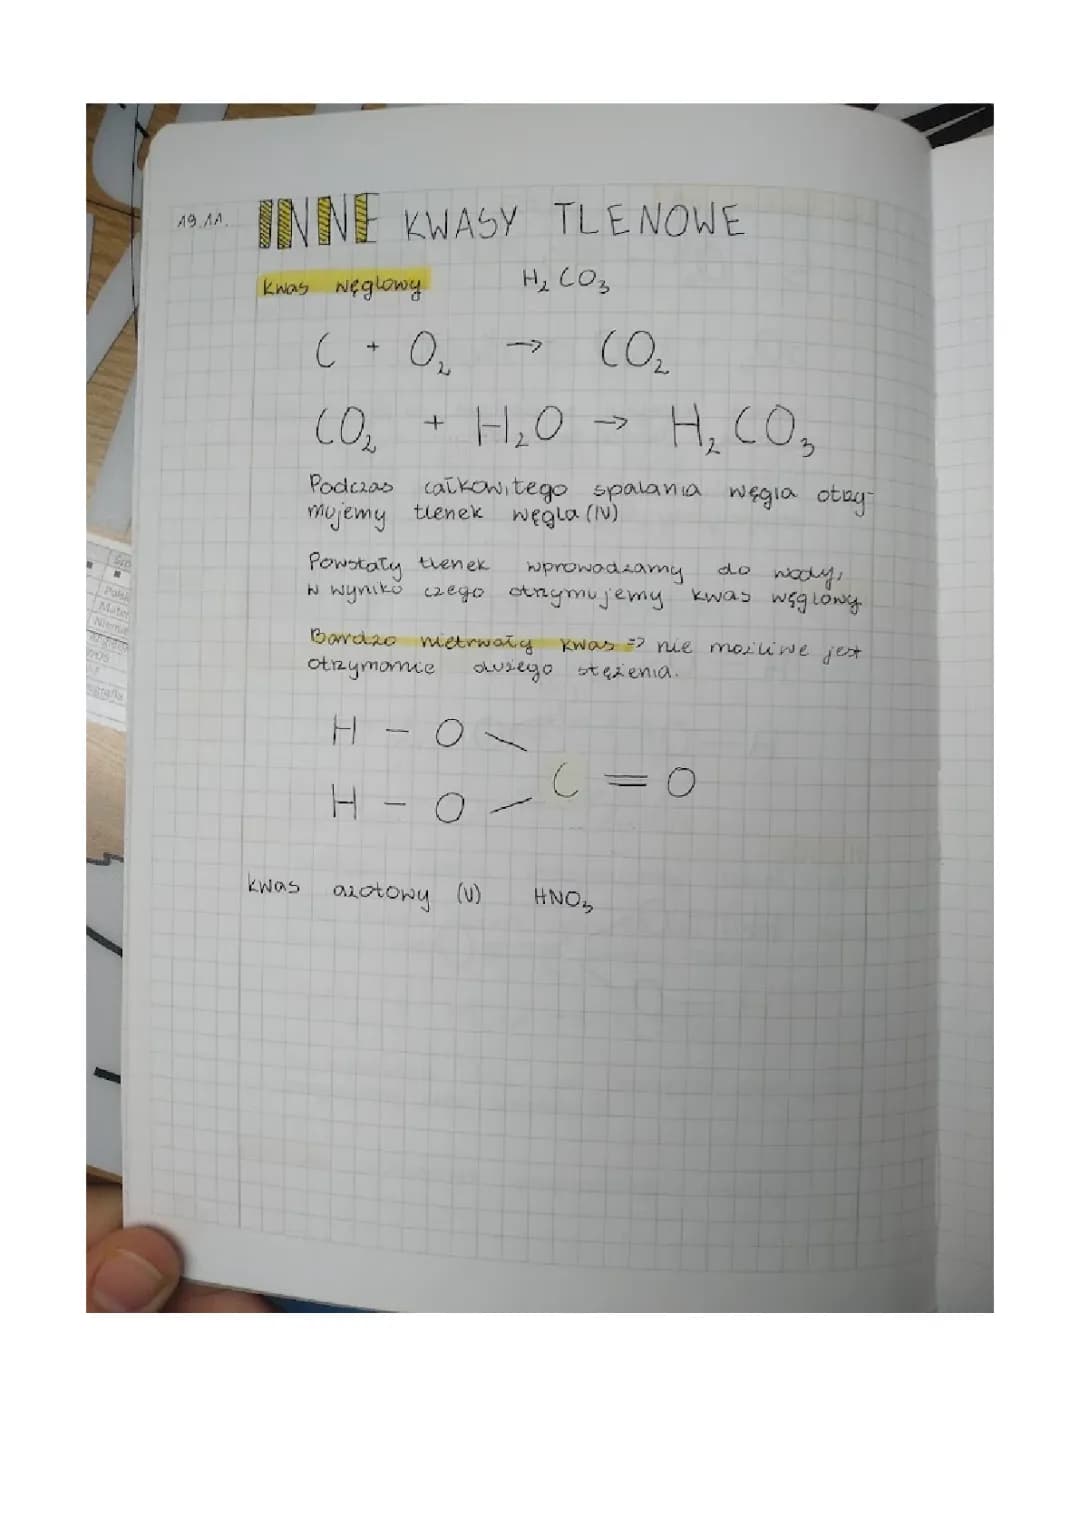 19.11. INNE KWASY TLENOWE
Kwas węglowy H₂CO₃
C + O₂ → CO₂
CO₂ + H₂O → H₂CO₃
Podczas całkowitego spalania węgla otrzy-
mujemy tlenek węgla (IV)
Powstały tlenek wprowadzamy do wody,
w wyniku czego otrzymujemy kwas węglowy
Bardzo nietrwały kwas => nie możliwe jest
otrzymanie dużego stężenia.
H - O
C = O
H - O
kwas azotowy (V) HNO₃